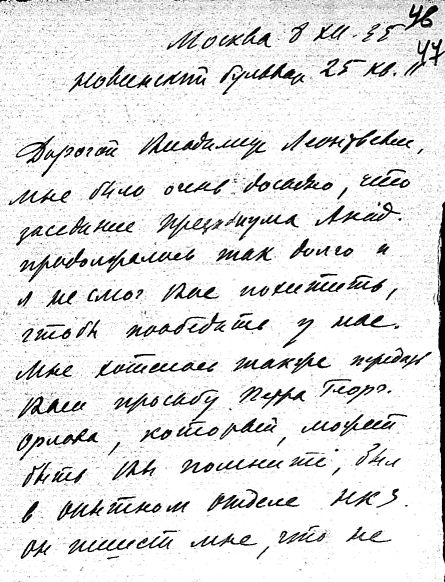 46
Москва 8 XII. 35
47
Новинский бульвар 25 кв. 11
Дорогой Владимир Леонтьевич,
мне было очень досадно, что
заседание Президиума Акад.
продолжалось так долго и
я не смог Вас похитить,
чтобы пообедать у нас.
Мне хотелось также передать
Вам просьбу Петра Георг.
Орлова, который, может
быть Вы помните, был
в опытном отделе НКЗ.
Он пишет мне, что не